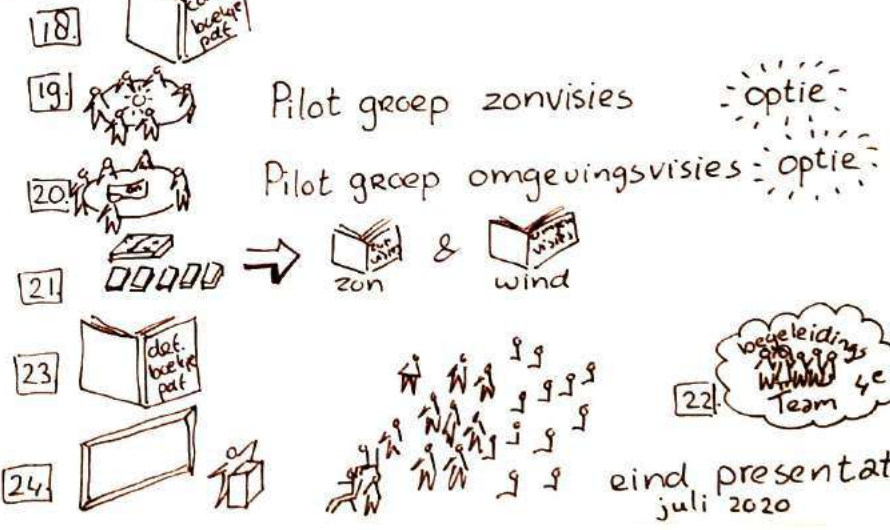 18.
boekje
pdf
19. Pilot groep zonvisies optie
20. Pilot groep omgevingsvisies optie
21. zon & wind
visies
23 def.
boekje
pdf
22. begeleidings
Team 4e
24. eind presentat
juli 2020